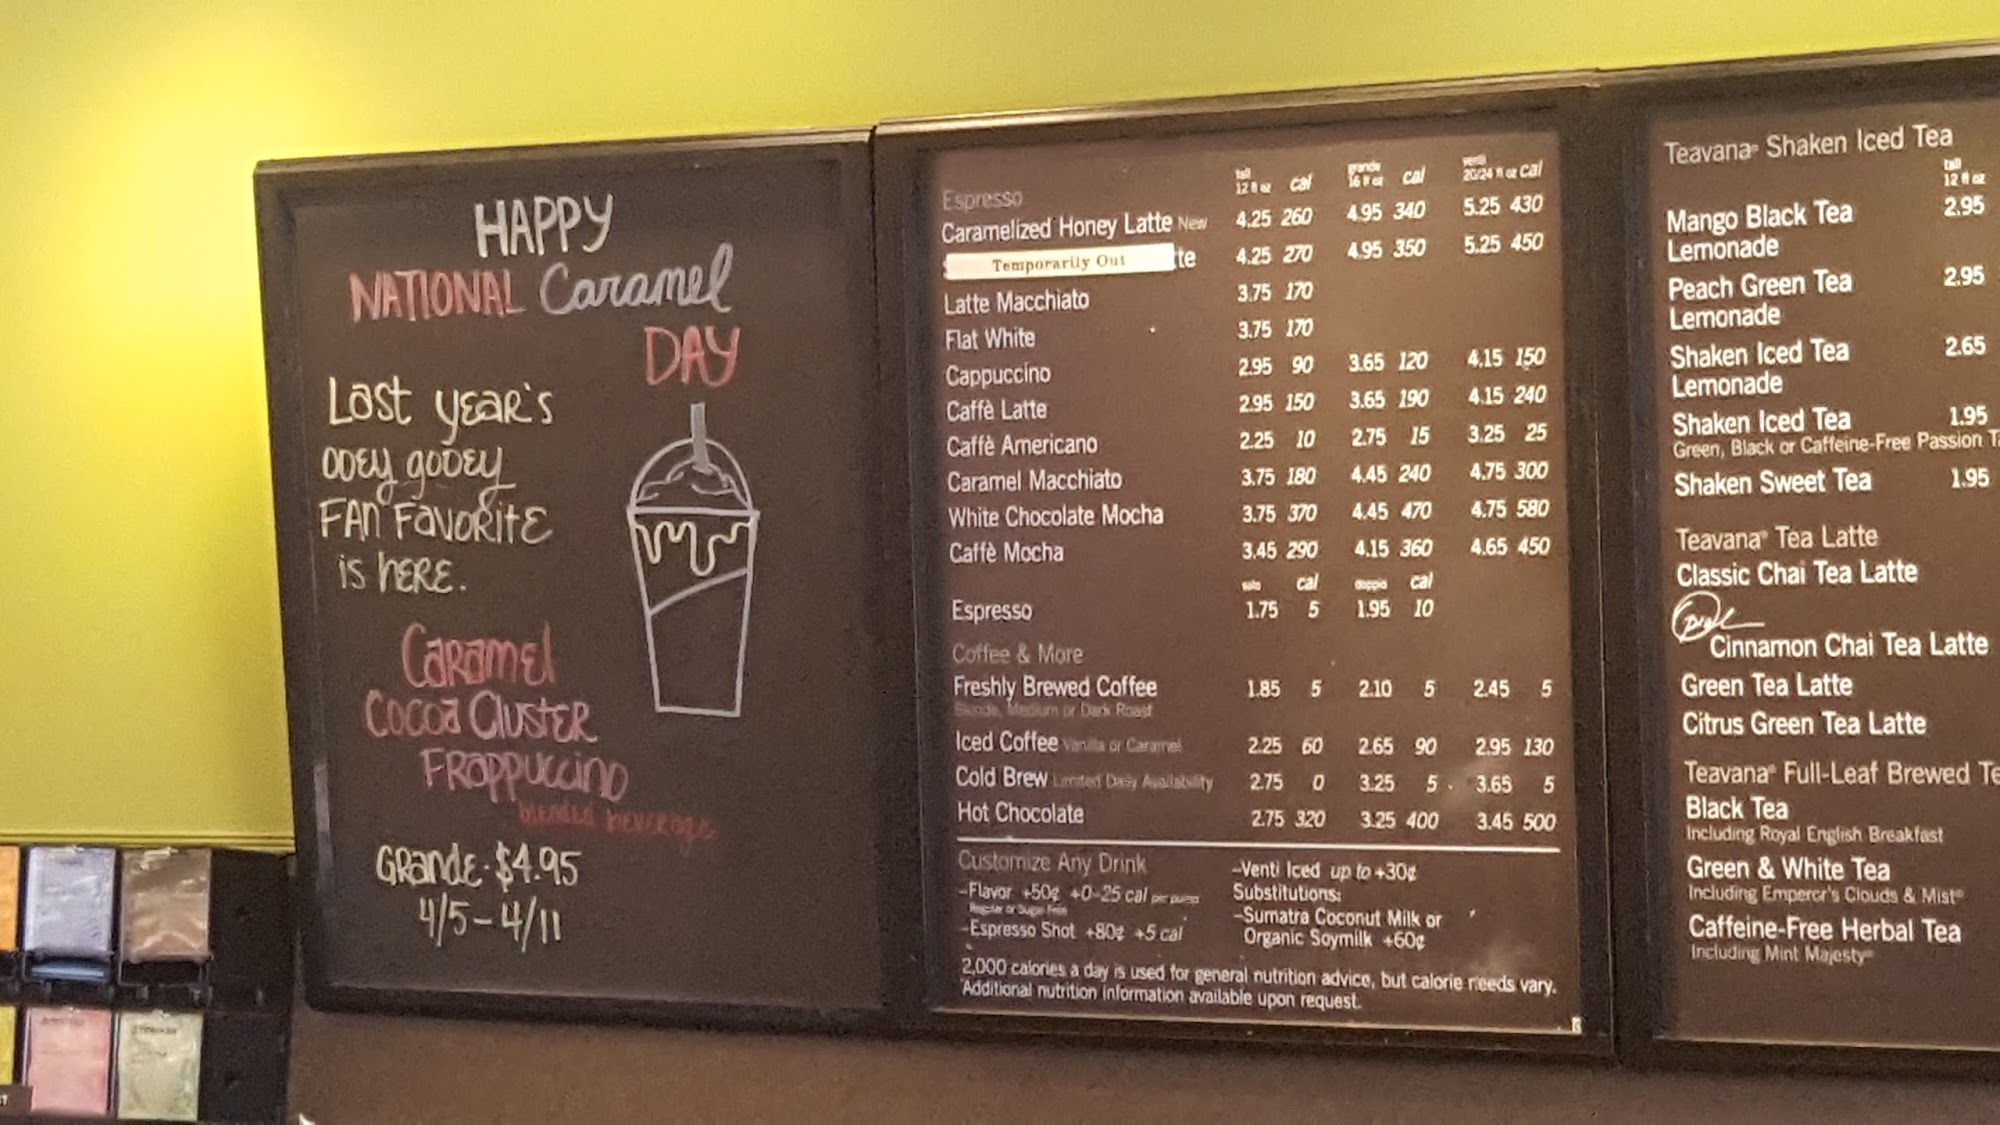 HAPPY
NATIONAL Caramel
DAY
Last year's
ooey gooey
fan favorite
is here.
Caramel
Cocoa Cluster
Frappuccino
blended beverage
Grande - $4.95
4/5 - 4/11
tall 12 fl oz cal grande 16 fl oz cal venti 20/24 fl oz cal
Espresso
Caramelized Honey Latte New 4.25 260 4.95 340 5.25 430
Temporarily Out tte 4.25 270 4.95 350 5.25 450
Latte Macchiato 3.75 170
Flat White 3.75 170
Cappuccino 2.95 90 3.65 120 4.15 150
Caffè Latte 2.95 150 3.65 190 4.15 240
Caffè Americano 2.25 10 2.75 15 3.25 25
Caramel Macchiato 3.75 180 4.45 240 4.75 300
White Chocolate Mocha 3.75 370 4.45 470 4.75 580
Caffè Mocha 3.45 290 4.15 360 4.65 450
solo cal doppio cal
Espresso 1.75 5 1.95 10
Coffee & More
Freshly Brewed Coffee 1.85 5 2.10 5 2.45 5
Blonde, Medium or Dark Roast
Iced Coffee Vanilla or Caramel 2.25 60 2.65 90 2.95 130
Cold Brew Limited Daily Availability 2.75 0 3.25 5 3.65 5
Hot Chocolate 2.75 320 3.25 400 3.45 500
Customize Any Drink
–Flavor +50¢ +0–25 cal per pump
Regular or Sugar Free
–Espresso Shot +80¢ +5 cal
–Venti Iced up to +30¢
Substitutions:
–Sumatra Coconut Milk or
Organic Soymilk +60¢
2,000 calories a day is used for general nutrition advice, but calorie needs vary.
Additional nutrition information available upon request.
Teavana® Shaken Iced Tea
tall
12 fl oz
Mango Black Tea 2.95
Lemonade
Peach Green Tea 2.95
Lemonade
Shaken Iced Tea 2.65
Lemonade
Shaken Iced Tea 1.95
Green, Black or Caffeine-Free Passion T
Shaken Sweet Tea 1.95
Teavana® Tea Latte
Classic Chai Tea Latte
Cinnamon Chai Tea Latte
Green Tea Latte
Citrus Green Tea Latte
Teavana® Full-Leaf Brewed Te
Black Tea
Including Royal English Breakfast
Green & White Tea
Including Emperor's Clouds & Mist®
Caffeine-Free Herbal Tea
Including Mint Majesty®